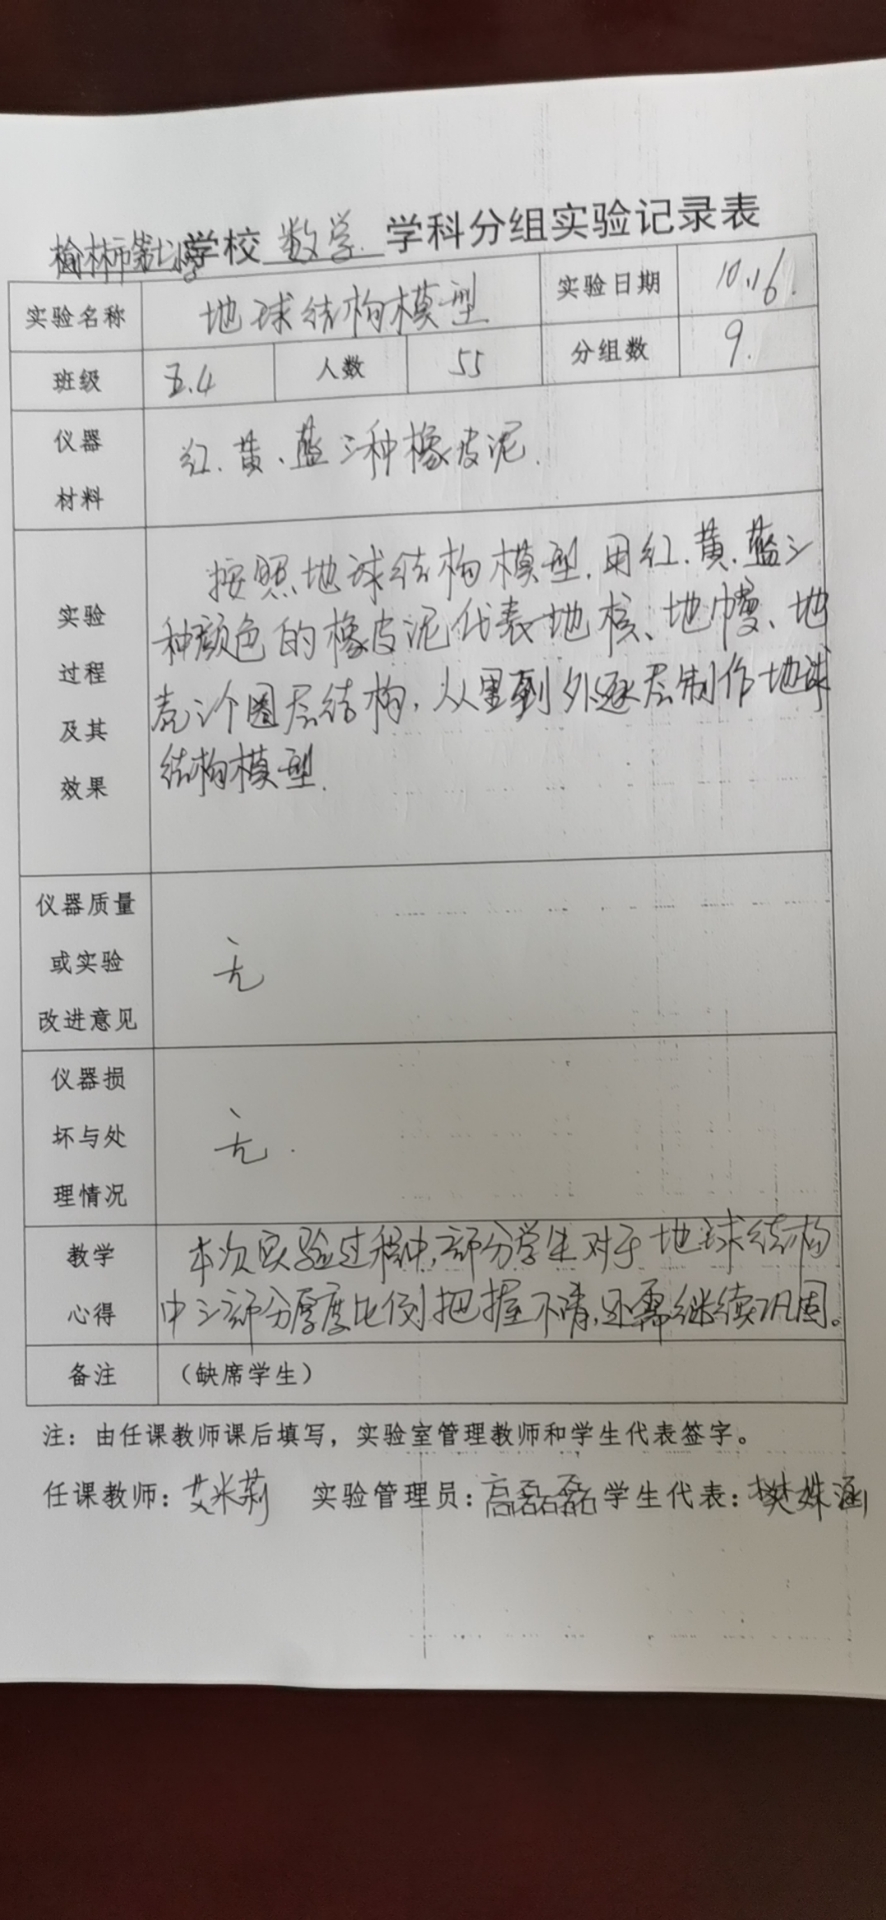 榆林市第七小学学校 数学 学科分组实验记录表
实验名称 地球结构模型 实验日期 10.16.
班级 五.4 人数 55 分组数 9.
仪器 材料 红、黄、蓝三种橡皮泥.
实验 过程 及其 效果
按照地球结构模型,用红、黄、蓝三
种颜色的橡皮泥代表地核、地幔、地
壳三个圈层结构,从里到外逐层制作地球
结构模型.
仪器质量 或实验 改进意见 无
仪器损 坏与处 理情况 无.
教学 心得
本次实验过程中,部分学生对于地球结构
中三部分厚度比例把握不清,还需继续巩固。
备注 (缺席学生)
注:由任课教师课后填写,实验室管理教师和学生代表签字。
任课教师:艾米莉 实验管理员:高磊磊 学生代表:樊姝涵